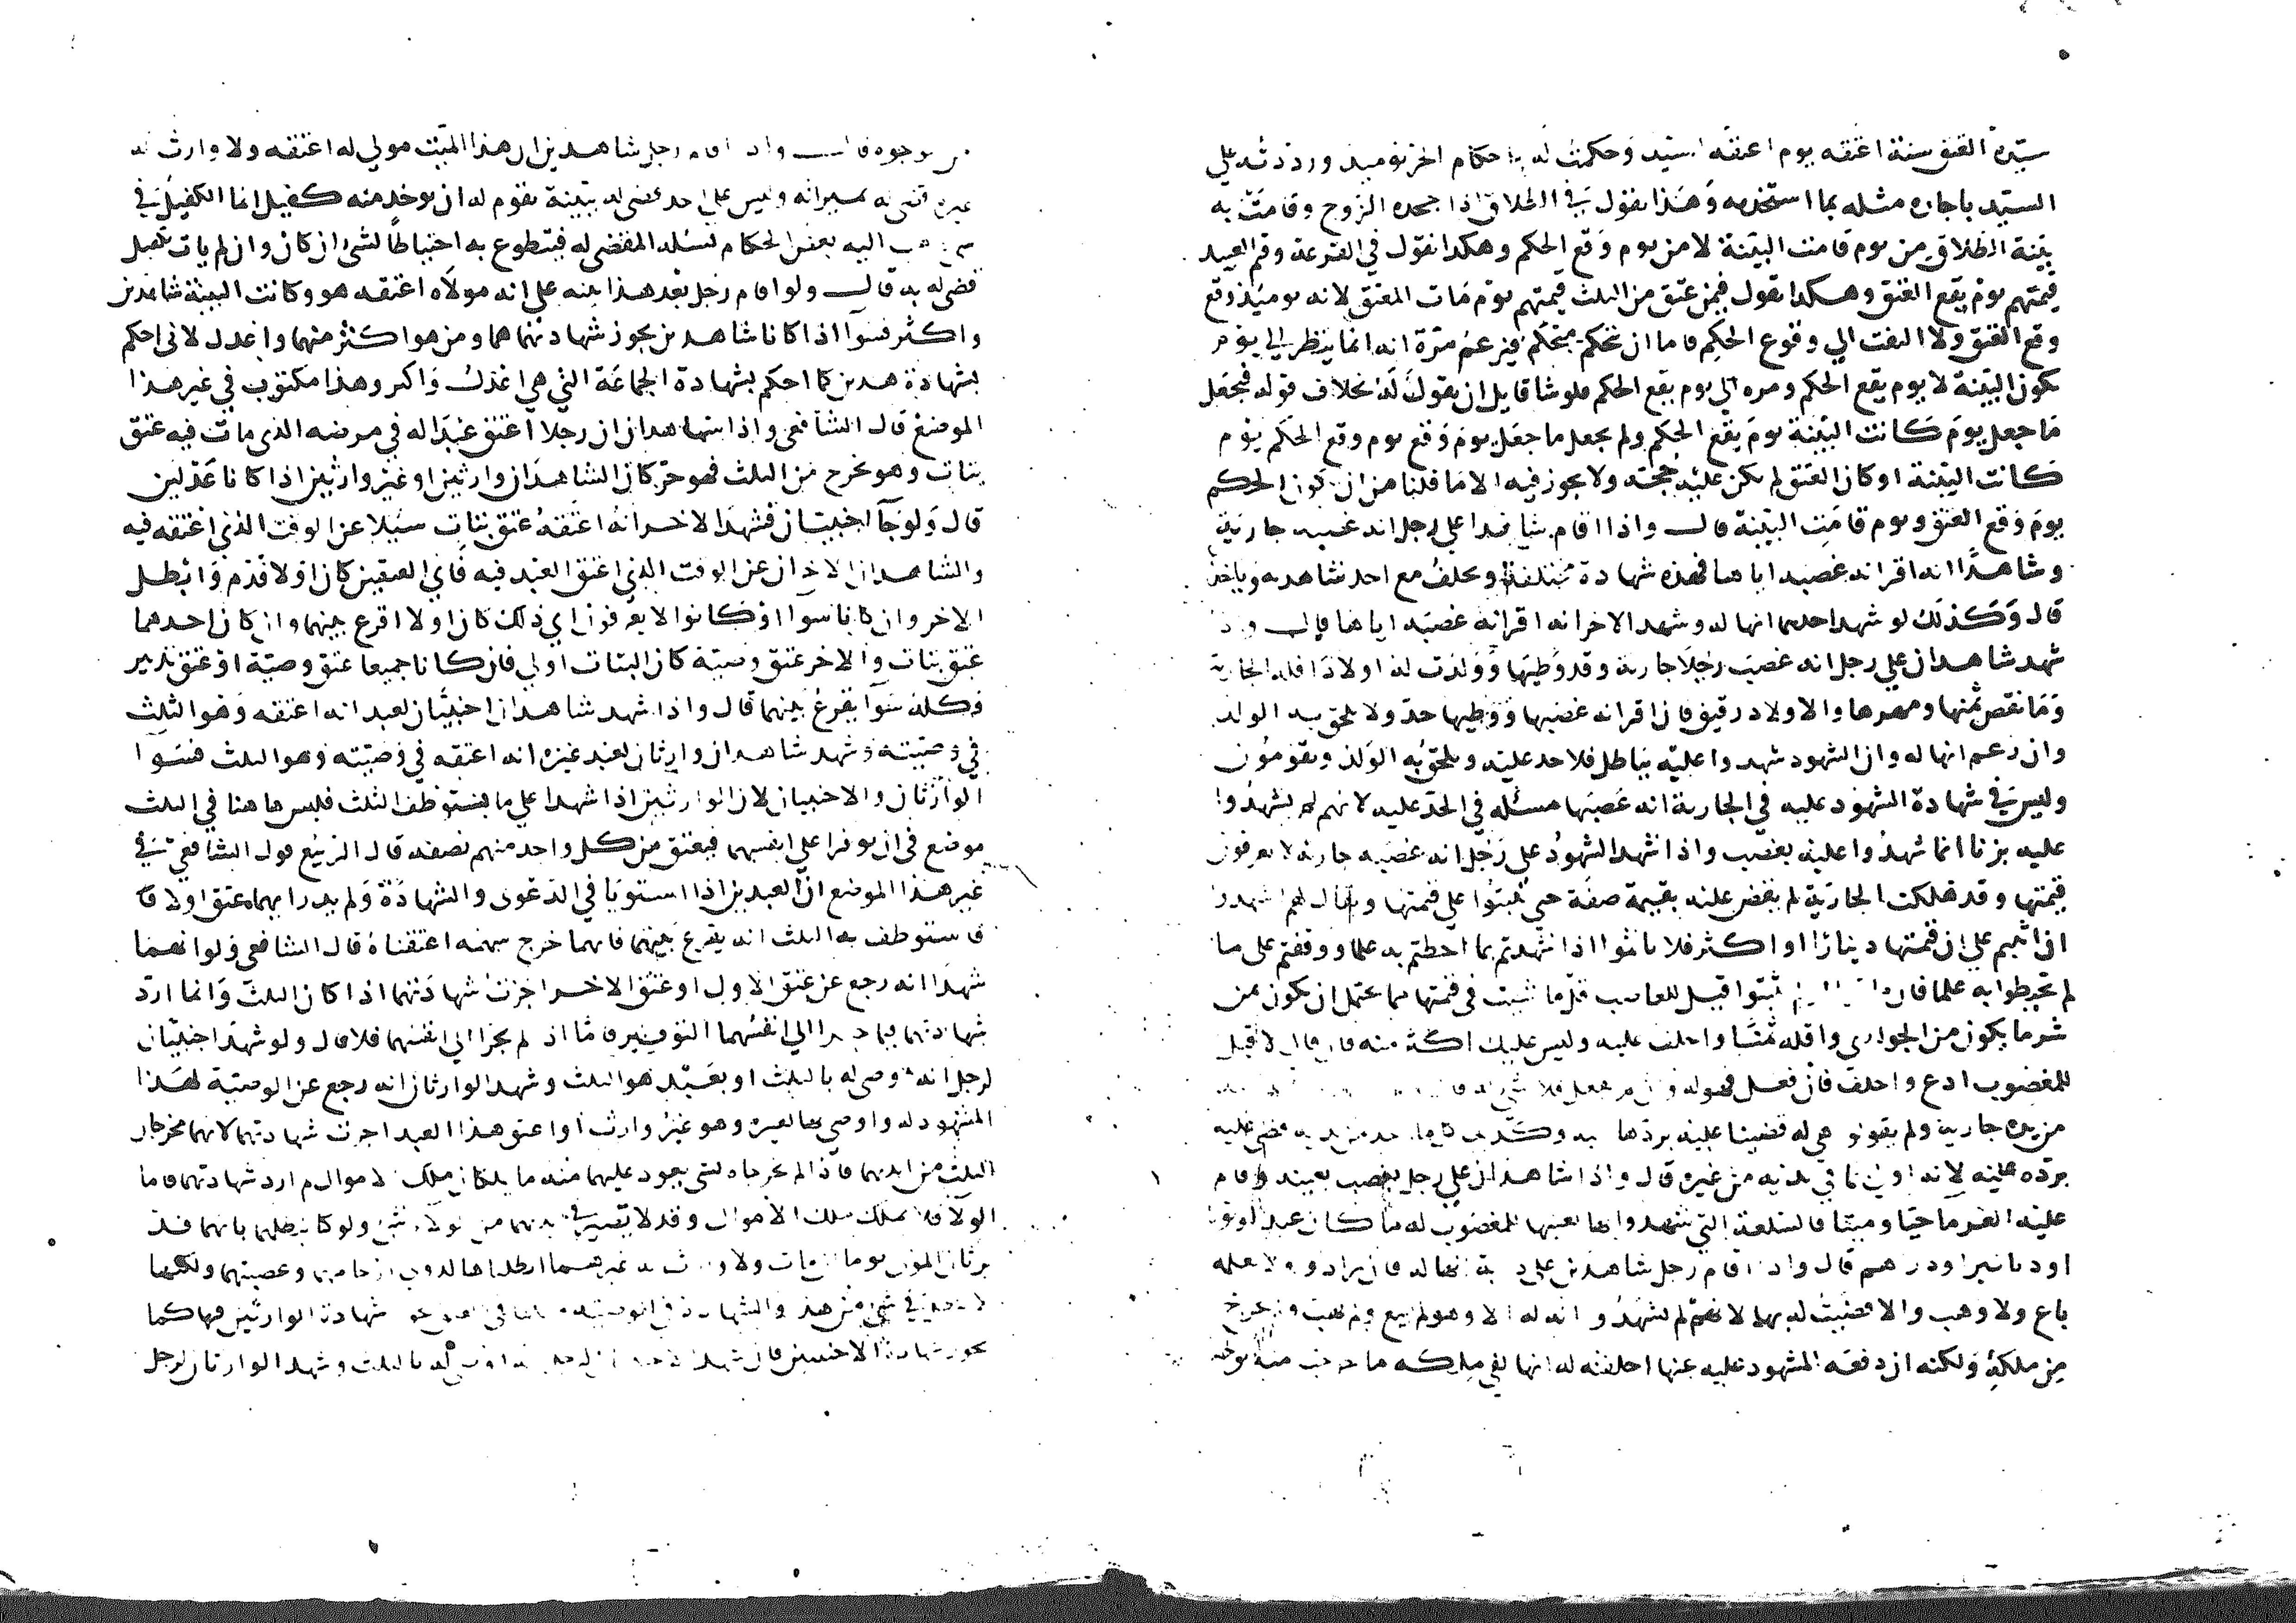 سيده العتق سنة اعتقه يوم اعتقه السيد وحكمت له باحكام الحر يوميذ ورددته علي
السيد باجارة مثله بما استخدمه وهذا نقول في الطلاق اذا جحده الزوج وقامت به
بينة الطلاق من يوم قامت البينة لا من يوم وقع الحكم وهكذا نقول في القرعة وقيم العبيد
قيمتهم يوم يقع العتق وهكذا نقول فيمن عتق من الثلث قيمتهم يوم مات المعتق لانه يوميذ وقع
وقع العتق ولا التفت الي وقوع الحكم فاما ان تحكم متحكم فيزعم مرة انه انما ينظر الي يوم
تكون البينة لا يوم يقع الحكم ومره الي يوم يقع الحكم فلو شا قايل ان يقول له بخلاف قوله فيجعل
ما جعل يوم كانت البينة يوم يقع الحكم ولم يجعل ما جعل يوم وقع يوم وقع الحكم يوم
كانت البينة او كان العتق لم يكن عليه حجته ولا يجوز فيه الا ما قلنا من ان يكون الحكم
يوم وقع العتق ويوم قامت البينة قال واذا اقام شاهدا علي رجل انه غصبه جارية
وشاهدا انه اقر انه غصبه اياها فهذه شهادة مختلفة ويحلف مع احد شاهديه وياخذ
قال وكذلك لو شهد احدهما انها له وشهد الاخر انه اقر انه غصبه اياها قال واذا
شهد شاهدان علي رجل انه غصب رجلا جارية وقد وطيها وولدت له اولادا فله الجارية
وما نقص ثمنها ومهرها والاولاد رقيق فان اقر انه غصبها ووطيها حد ولا يلحق به الولد
وان زعم انها له وان الشهود شهدوا عليه بباطل فلا حد عليه ويلحق به الولد ويقومون
وليس في شهادة الشهود عليه في الجارية انه غصبها مسئلة في الحد عليه لانهم لم يشهدوا
عليه بزنا انما شهدوا عليه بغصب واذا شهد الشهود علي رجل انه غصبه جارية لا يعرفون
قيمتها وقد هلكت الجارية لم يقض عليه بقيمة صفة حتي يثبتوا علي قيمتها ويقال لهم اشهدوا
ان اثبتم علي ان قيمتها دينارا او اكثر فلا تاثموا اذا شهدتم بما احطتم به علما ووقفتم علي ما
لم تحيطوا به علما فان يثبتوا قيل للغاصب قل ما شيت في قيمتها مما يحتمل ان يكون من
شر ما يكون من الجواري واقله ثمنا واحلف عليه وليس عليك اكثر منه فان قال لا قيل
للمغصوب ادع واحلف فان فعل فهو له وان لم يفعل فلا شي له
من يده جارية ولم يقولوا هي له قضينا عليه بردها
برده عليه لانه اولي بما في يديه من غيره قال واذا شاهدان علي رجل بغصب بعينه وقام
عليه الغرما حيا وميتا فالسلعة التي شهدوا بها بعينها للمغصوب له ما كان عبدا او ثوبا
او دنانير او دراهم قال واذا اقام رجل شاهدين علي دابة انها له فان زادوا ولا نعلمه
باع ولا وهب والا قضيت له بها لانهم لم يشهدوا انه له الا وهو لم يبع ولم يهب ولم تخرج
من ملكه ولكنه ان دفعه المشهود عليه عنها احلفته له انها لفي ملكه ما خرجت منه بوجه
من الوجوه قال واذا اقام رجل شاهدين ان هذا الميت مولي له اعتقه ولا وارث له
غيره قضي له بميراثه وليس علي احد قضي له ببينة تقوم له ان يوخذ منه كفيل انما الكفيل في
شي ذهب اليه بعض الحكام يسئله المقضي له فيتطوع به احتياطا لشي ان كان وان لم يات بكفيل
قضي له به قال ولو اقام رجل بعد هذا بينه علي انه مولاه اعتقه هو وكانت البينة شاهدين
واكثر فسوآ اذا كانا شاهدين يجوز شهادتهما هما ومن هو اكثر منهما واعدل لاني احكم
بشهادة هذين كما احكم بشهادة الجماعة التي هي اعدل واكثر وهذا مكتوب في غير هذا
الموضع قال الشافعي واذا شهد شاهدان ان رجلا اعتق عبدا له في مرضه الذي مات فيه عتق
بتات وهو يخرج من الثلث فهو حر كان الشاهدان وارثين او غير وارثين اذا كانا عدلين
قال ولو جآ اجنبيان فشهدا لاخر انه اعتقه عتق بتات سئلا عن الوقت الذي اعتقه فيه
والشاهدان الاخران عن الوقت الذي اعتق العبد فيه فاي العتقين كان اولا قدم وابطل
الاخر وان كانا سوآ او كانوا لا يعرفون اي ذلك كان اولا اقرع بينهما وان كان احدهما
عتق بتات والاخر عتق وصية كان البتات اولي فان كانا جميعا عتق وصية او عتق تدبير
فكله سوآ يقرع بينهما قال واذا شهد شاهدان اجنبيان لعبد انه اعتقه وهو الثلث
في وصيته وشهد شاهدان وارثان لعبد غيره انه اعتقه في وصيته وهو الثلث فسوآ
الوارثان والاجنبيان لان الوارثين اذا شهدا علي ما يستوظف الثلث فليس ها هنا في الثلث
موضع في ان يوفرا علي انفسهما فيعتق من كل واحد منهم نصفه قال الربيع قول الشافعي في
غير هذا الموضع ان العبدين اذا استويا في الدعوي والشهادة ولم يدر ايهما عتق اولا فا
فاستوظف به الثلث انه يقرع بينهما فايهما خرج سهمه اعتقناه قال الشافعي ولو انهما
شهدا انه رجع عن عتق الاول او عتق الاخر اجزت شهادتهما اذا كان الثلث وانما ارد
شهادتهما فيما جرا الي انفسهما التوفير فاما اذ لم يجرا الي انفسهما فلا قال ولو شهد اجنبيان
لرجل انه اوصي له بالثلث او بعبد هو الثلث وشهد الوارثان انه رجع عن الوصية لهذا
المشهود له واوصي بها لغيره وهو غير وارث او اعتق هذا العبد اجزت شهادتهما لانهما مخرجان
الثلث من ايديهما فاذا لم يخرجاه لشي يعود عليهما منه ما يملكان ملك الاموال لم ارد شهادتهما فاما
الولآ فلا يملك ملك الاموال وقد لا يصير في ايديهما من الولآ شي ولو كان يبطلهما بانهما قد
يرثان المولي يوما ان مات ولا وارث له غيرهما ابطلناها لذوي ارحامهما وعصبتهما ولكنها
لا تبطل في شي من هذا والشهادة في الوصية شهادة الوارثين فيها كما
يجوز شهادة الاجنبيين فان شهد بالثلث وشهد الوارثان لرجل